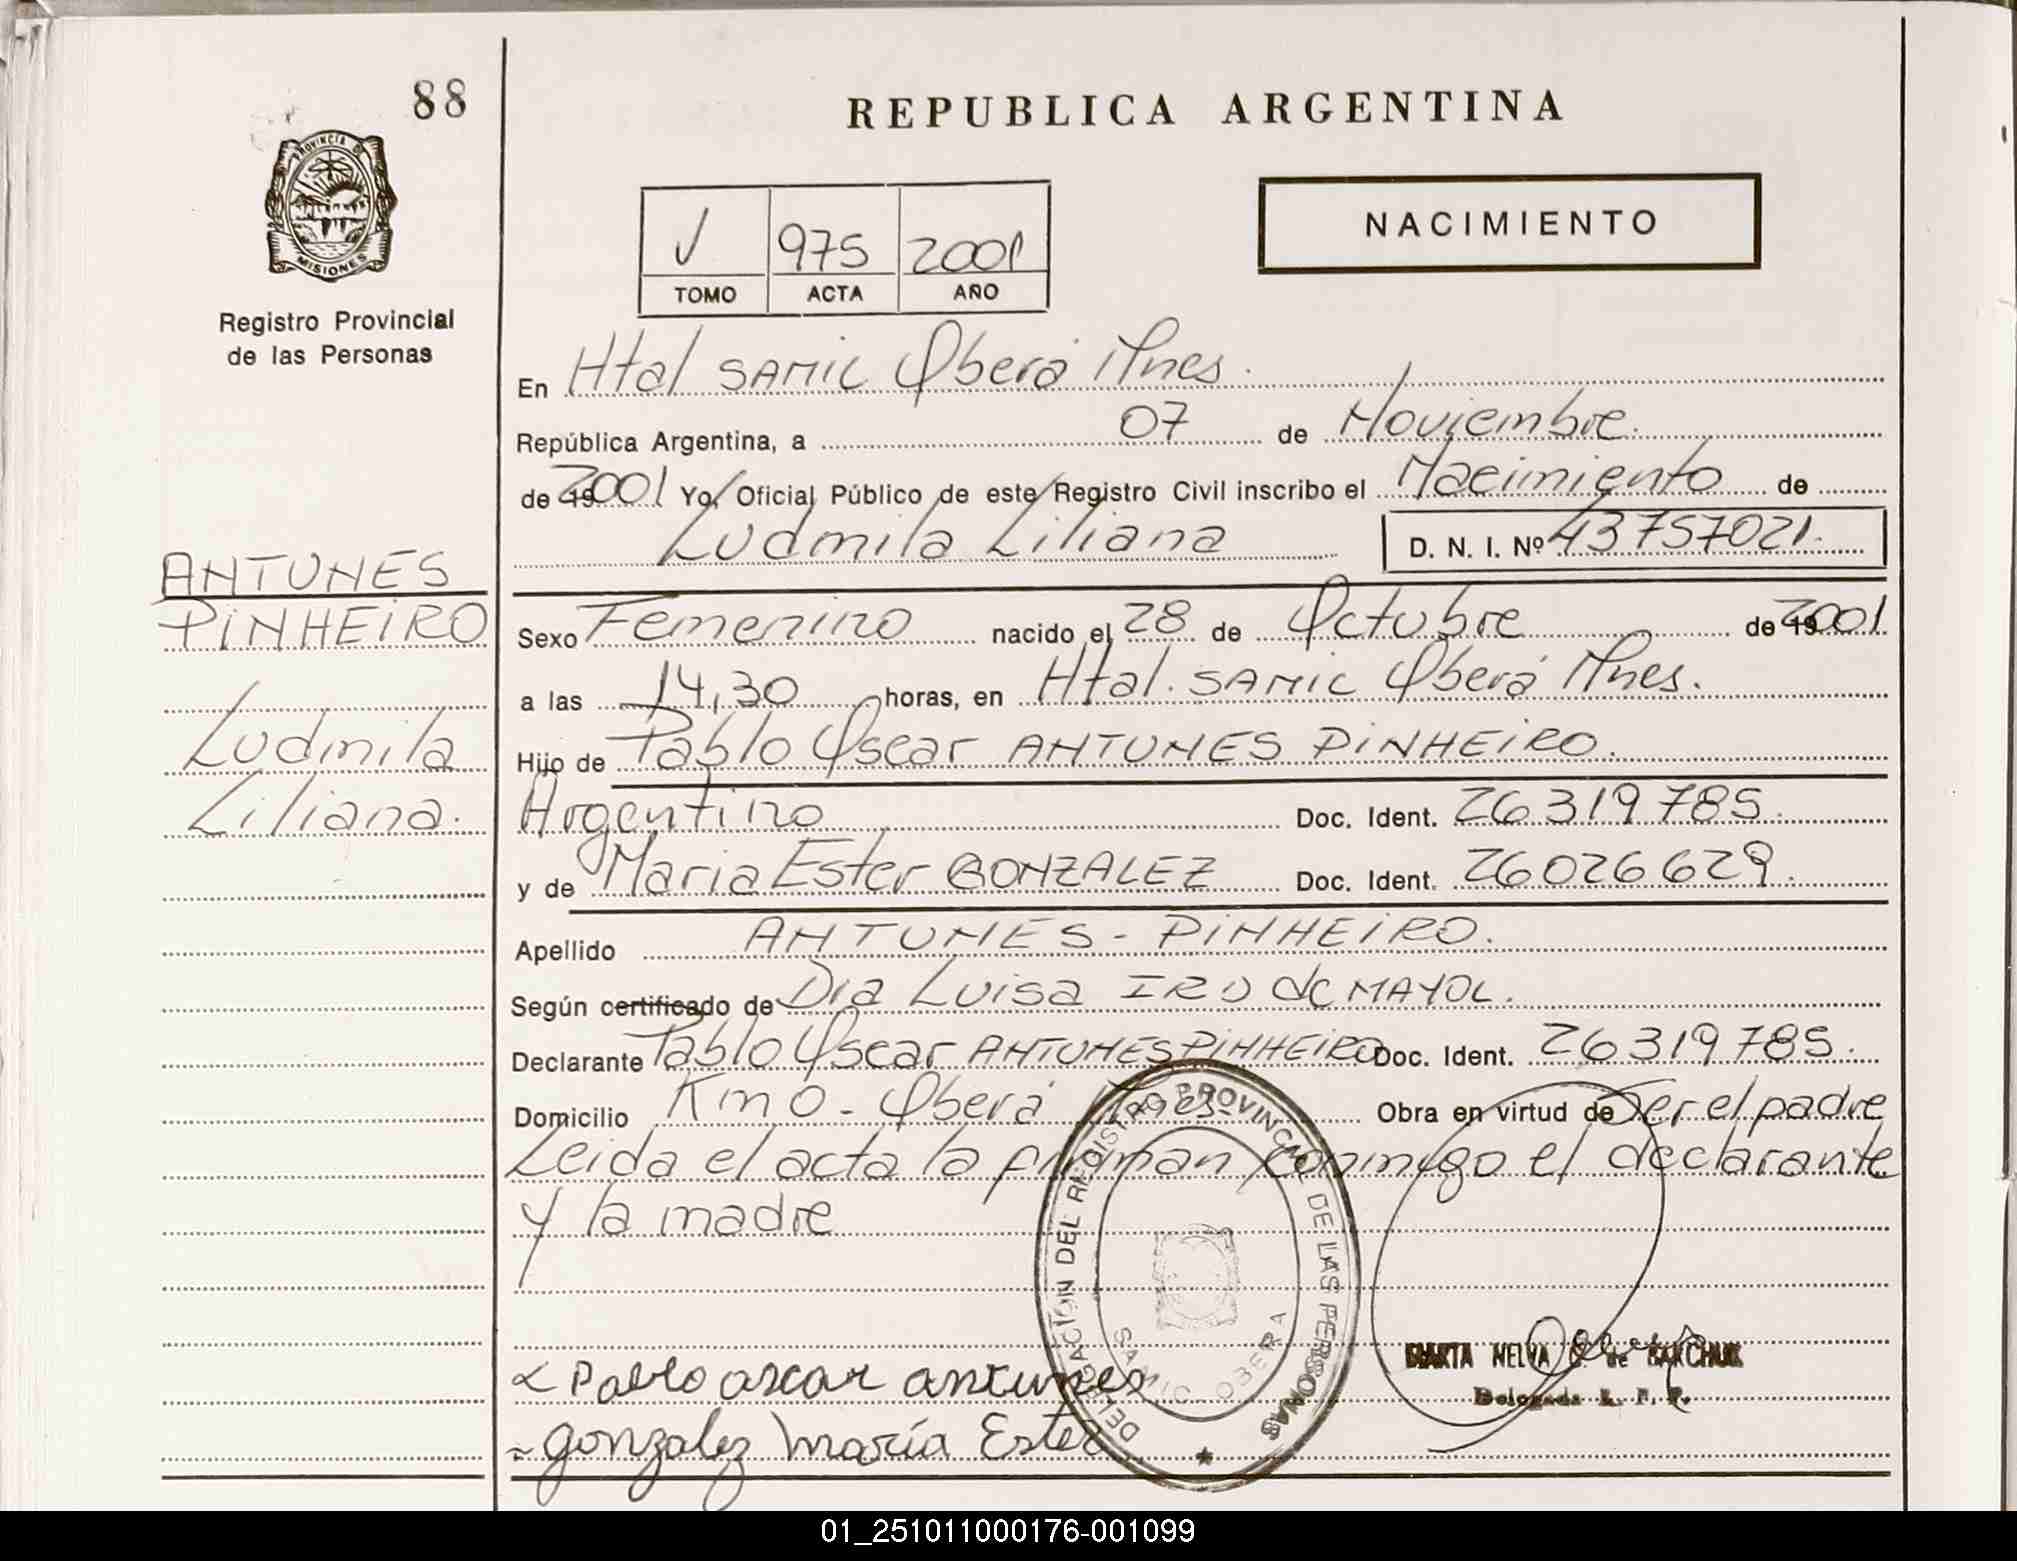 88
PROVINCIA D
MISIONES
Registro Provincial
de las Personas
REPUBLICA ARGENTINA
V 975 2001
TOMO ACTA AÑO
NACIMIENTO
En Htal SAMIC Oberá Mnes.
República Argentina, a 07 de Noviembre.
de 2001 Yo, Oficial Público de este Registro Civil inscribo el Nacimiento de
Ludmila Liliana D. N. I. Nº 43757021.
ANTUNES
PiNHEiRO
Ludmila
Liliana.
Sexo Femenino nacido el 28 de Octubre de 2001
a las 14,30 horas, en Htal. SAMIC Oberá Mnes.
Hijo de Pablo Oscar ANTUNES PiNHEiRO.
Argentino Doc. Ident. 26319785.
y de Maria Ester GONZALEZ Doc. Ident. 26026629.
Apellido ANTUNES - PiNHEiRO.
Según certificado de Dra Luisa IRU de MAYOL.
Declarante Pablo Oscar ANTUNES PiNHEiRO Doc. Ident. 26319785.
Domicilio Km 0 - Oberá Mnes- Obra en virtud de Ser el padre
Leida el acta la firman conmigo el declarante
y la madre
DELEGACIÓN DEL REGISTRO PROVINCIAL DE LAS PERSONAS
SAMIC OBERA
Pablo oscar antunes
gonzalez maría Ester
MARTA NELVA de
Delegada R. P. P.
01_251011000176-001099